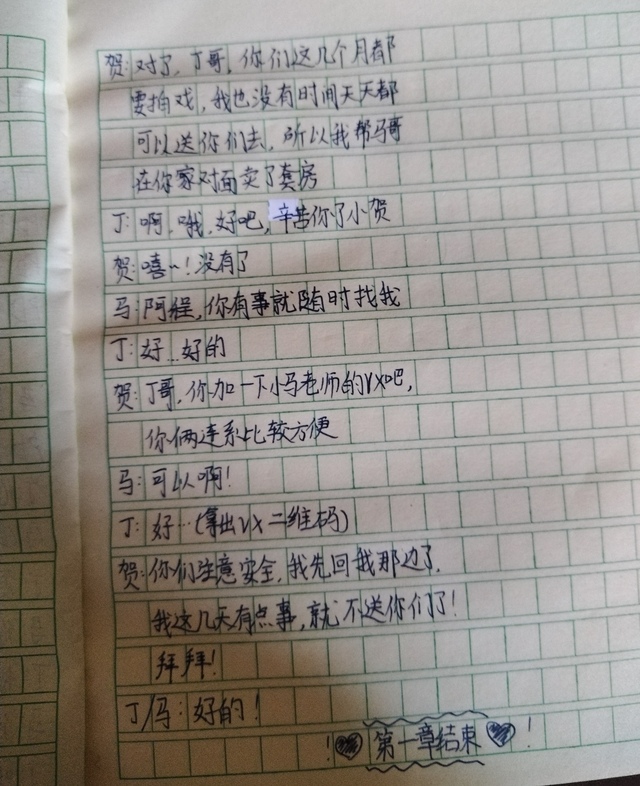 贺:对了,丁哥,你们这几个月都
要拍戏,我也没有时间天天都
可以送你们去,所以我帮马哥
在你家对面卖了套房
丁:啊,哦,好吧,辛苦你了小贺
贺:嘻~!没有了
马:阿程,你有事就随时找我
丁:好...好的
贺:丁哥,你加一下小马老师的VX吧,
你俩连系比较方便
马:可以啊!
丁:好...(拿出VX二维码)
贺:你们注意安全,我先回我那边了,
我这几天有点事,就不送你们了!
拜拜!
丁/马:好的!
!♥第一章结束♥!